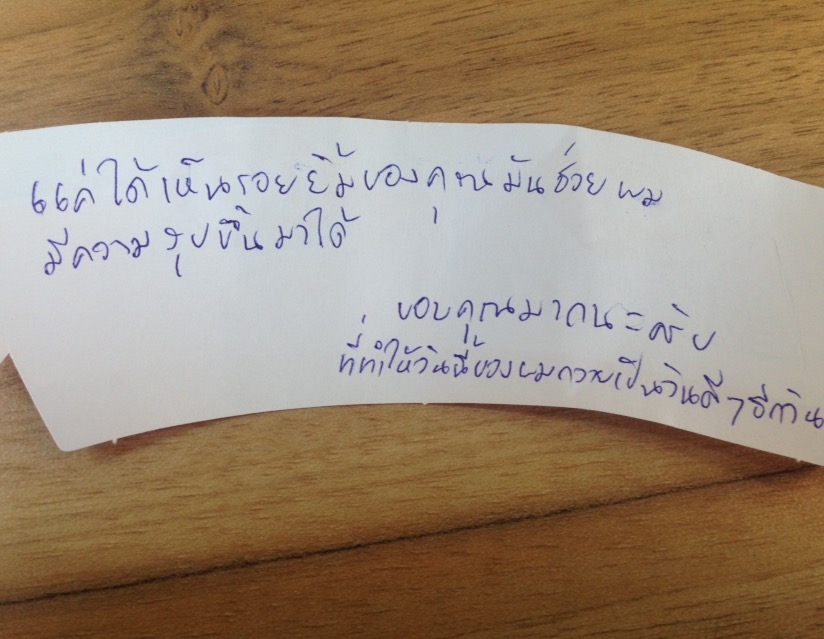 แค่ได้เห็นรอยยิ้มของคุณมันช่วยผม
มีความสุขขึ้นมาได้
ขอบคุณมากนะครับ
ที่ทำให้วันนี้ของผมกลายเป็นวันดีๆอีกวัน